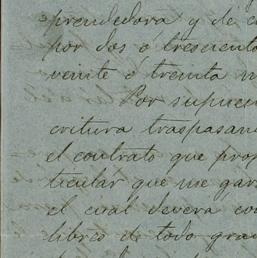 prendedora y de c
por dos ó trescient
veinte ó treinta m
Por supue
critura traspasan
el contrato que prop
ticular que me gar
el cual devera co
libres de todo gra